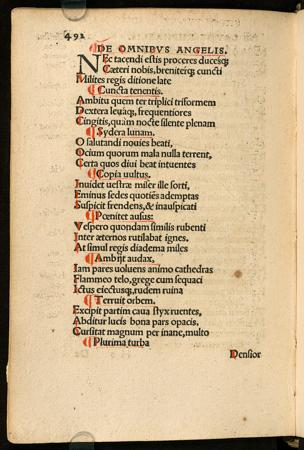 492
¶DE OMNIBVS ANGELIS.
NEc tacendi estis proceres ducesq;
Cæteri nobis, breniterq; cuncti
Milites regis ditione late
¶Cuncta tenentis.
Ambitu quem ter triplici triformem
Dextera leuáq;, frequentiores
Cingitis, quàm nocte silente plenam
¶Sydera lunam.
O salutandi nouies beati,
Ocium quorum mala nulla terrent,
Certa quos diui beat intuentes
¶Copia uultus.
Inuidet uestræ miser ille sorti,
Eminus sedes quotiēs ademptas
Suspicit frendens, & inauspicati
¶Pœnitet ausus:
Vespero quondam similis rubenti
Inter æternos rutilabat ignes,
At simul regis diadema miles
¶Ambijt audax,
Iam pares uoluens animo cathedras
Flammeo telo, grege cum sequaci
Ictus eiectusq;, rudem ruina
¶Terruit orbem.
Excipit partim caua styx ruentes,
Abditur lucis bona pars opacis,
Cursitat magnum per inane, multo
¶Plurima turba
Densior